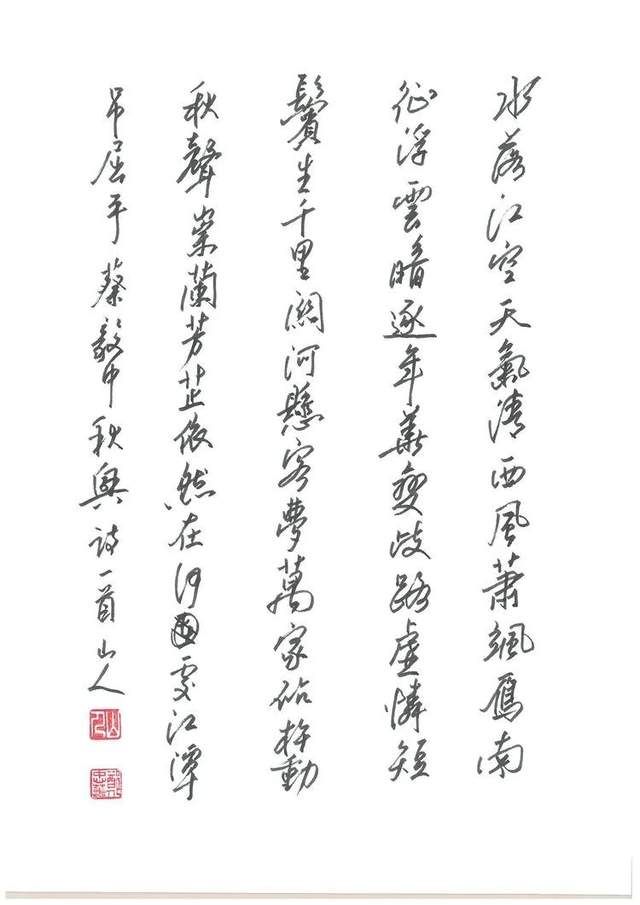 水落江空天氣清西風蕭颯雁南
征浮雲暗逐年華變歧路虛憐短
鬢生千里關河懸客夢萬家砧杵動
秋聲崇蘭芳芷依然在何處江潭
弔屈平 蔡毅中秋興詩一首 山人
山人